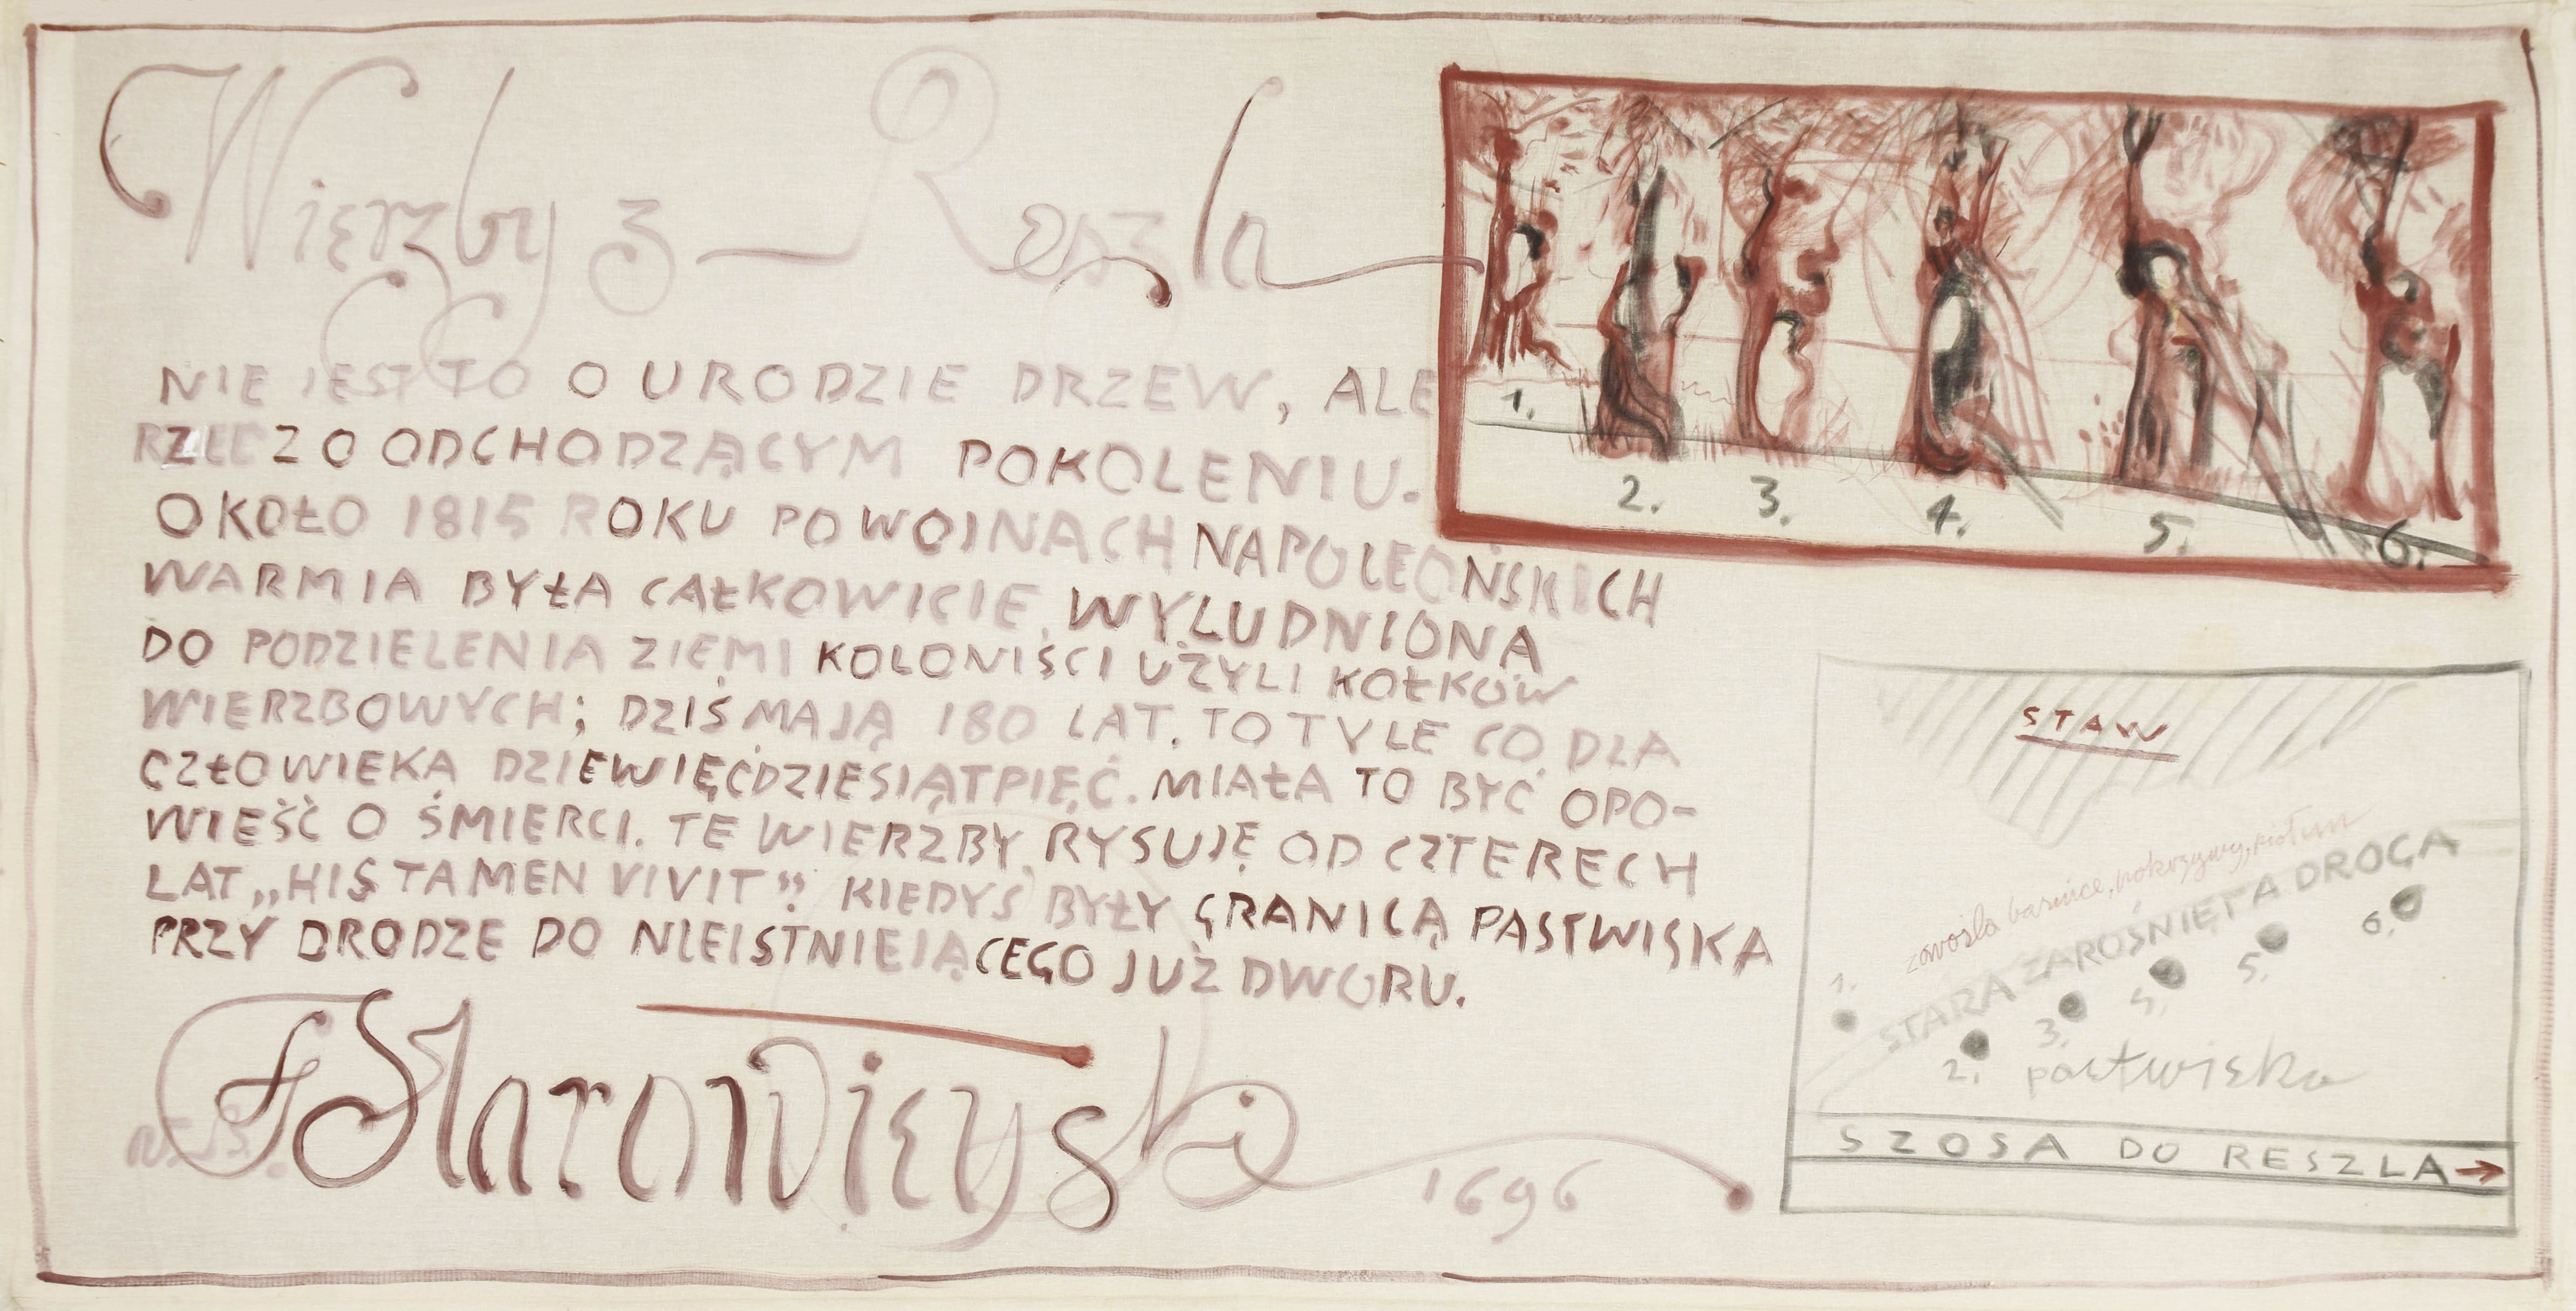 Wierzby z Reszla
NIE JEST TO O URODZIE DRZEW, ALE
RZECZ O ODCHODZĄCYM POKOLENIU.
OKOŁO 1815 ROKU PO WOJNACH NAPOLEOŃSKICH
WARMIA BYŁA CAŁKOWICIE WYLUDNIONA
DO PODZIELENIA ZIEMI KOLONIŚCI UŻYLI KOŁKÓW
WIERZBOWYCH; DZIŚ MAJĄ 180 LAT. TO TYLE CO DLA
CZŁOWIEKA DZIEWIĘĆDZIESIĄTPIĘĆ. MIAŁA TO BYĆ OPO-
WIEŚĆ O ŚMIERCI. TE WIERZBY RYSUJĘ OD CZTERECH
LAT „HIS TAMEN VIVIT” KIEDYŚ BYŁY GRANICĄ PASTWISKA
PRZY DRODZE DO NIEISTNIEJĄCEGO JUŻ DWORU.
F Starowieyski
1696
1.
2.
3.
4.
5.
6.
STAW
zarosła barszcze, pokrzywy,
STARA ZAROŚNIĘTA DROGA
1.
2.
3.
4.
5.
6.
pastwisko
SZOSA DO RESZLA →